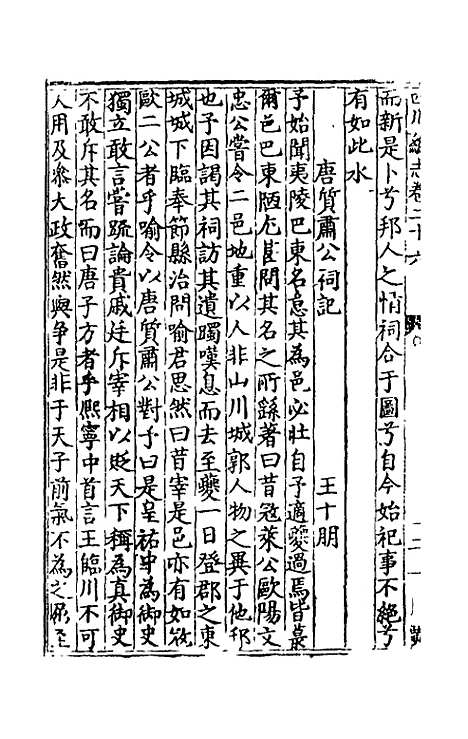 四川總志卷二十六
而新是卜兮邦人之情祠合于圖兮自今始祀事不絕兮
有如此水
唐質肅公祠記 王十朋
予始聞夷陵巴東名意其為邑必壯自予適夔過焉皆蕞
爾邑巴東陋尤甚問其名之所繇著曰昔寇萊公歐陽文
忠公嘗令二邑地重以人非山川城郭人物之異于他邵
也予因謁其祠訪其遺躅嘆息而去至夔一日登郡之東
城城下臨奉節縣治問喻君思然曰昔宰是邑亦有如寇
歐二公者乎喻令以唐質肅公對予曰是皇祐中為御史
獨立敢言嘗疏論貴戚廷斥宰相以貶天下稱為真御史
不敢斥其名而曰唐子方者乎熈寧中首言王臨川不可
人用及叅大政奮然與爭是非于天子前氣不為之屈至